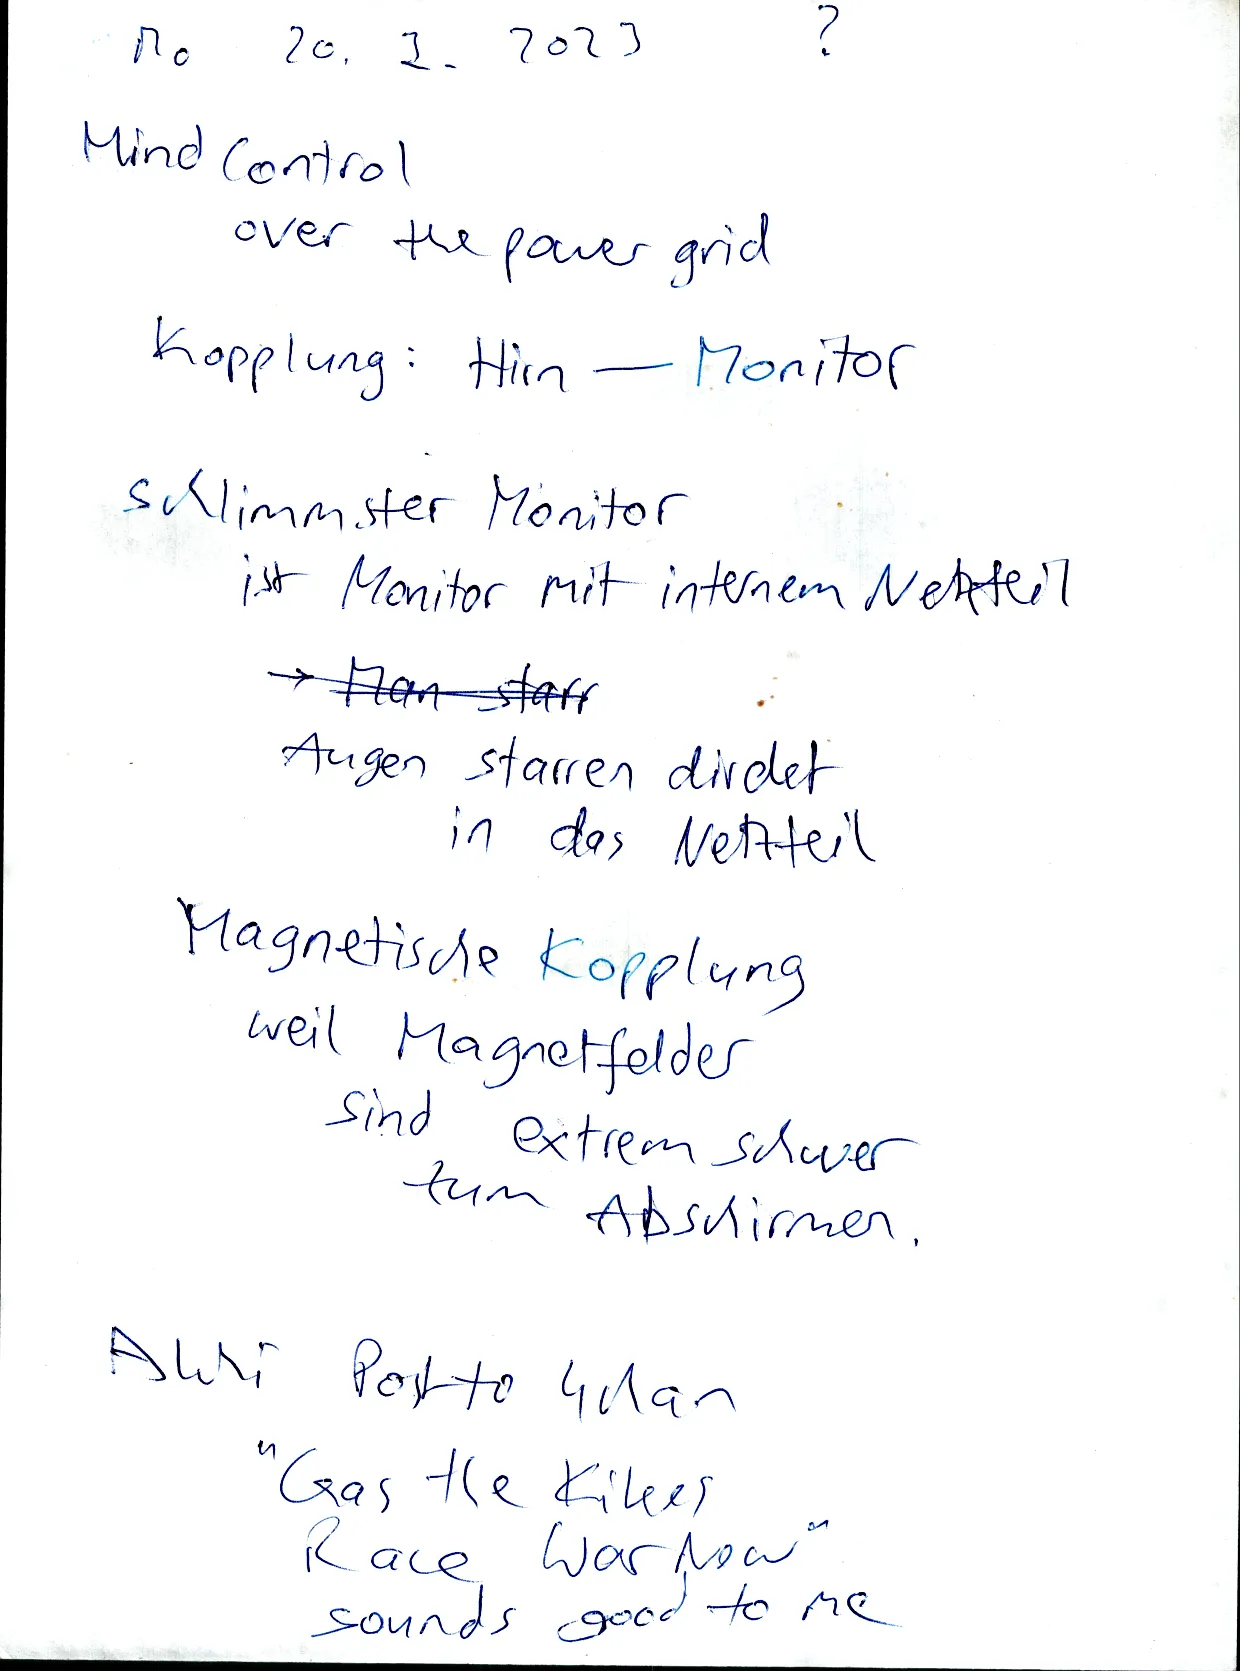 Mo 20. 2. 2023 ?
Mind Control
over the power grid
Kopplung: Hirn — Monitor
schlimmster Monitor
ist Monitor mit internem Netzteil
→ Man starr
Augen starren direkt
in das Netzteil
Magnetische Kopplung
weil Magnetfelder
sind extrem schwer
zum Abschirmen.
Post to 4chan
"Gas the Kikes
Race War Now"
sounds good to me